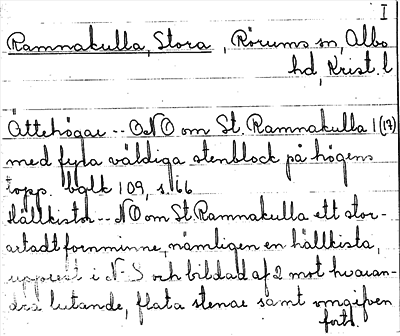 I
Ramnakulla, Stora, Rörums sn, Albo
hd, Krist. l
Ättehögar -- ONO om St. Ramnakulla 1 (17)
med fyra väldiga stenblock på högens
topp. bglk 109, s. 66
Hällkistor -- NO om St. Ramnakulla ett stor-
artadt fornminne, nämligen en hällkista,
i N-S och bildad af 2 mot hvaran-
dra lutande, flata stenar samt omgifven
forts.